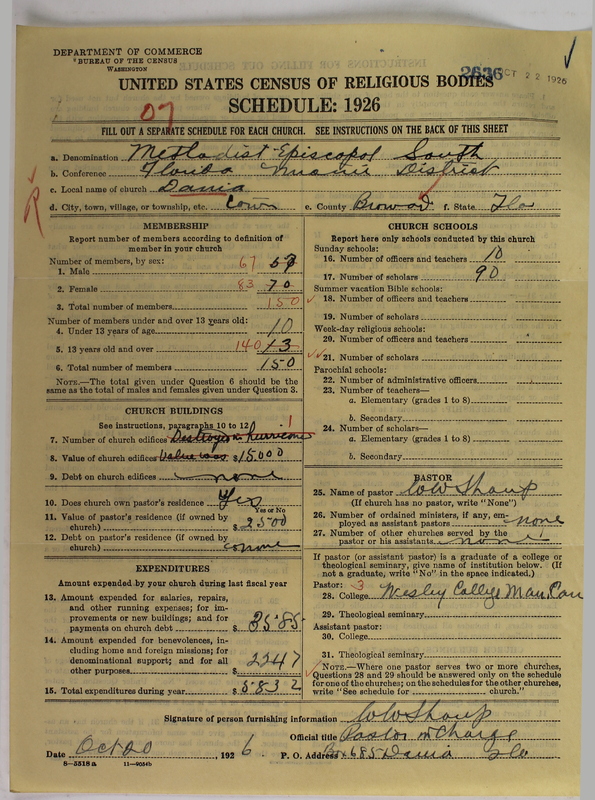 DEPARTMENT OF COMMERCE
BUREAU OF THE CENSUS
WASHINGTON
2636 OCT 22 1926
UNITED STATES CENSUS OF RELIGIOUS BODIES
SCHEDULE: 1926
07
FILL OUT A SEPARATE SCHEDULE FOR EACH CHURCH. SEE INSTRUCTIONS ON THE BACK OF THIS SHEET
a. Denomination Methodist Episcopal South
b. Conference Florida Miami District
c. Local name of church Dania
d. City, town, village, or township, etc. Town e. County Broward f. State Fla
R
MEMBERSHIP
Report number of members according to definition of
member in your church
Number of members, by sex:
1. Male 67
2. Female 83 70
3. Total number of members 150
Number of members under and over 13 years old:
4. Under 13 years of age 10
5. 13 years old and over 140 13
6. Total number of members 150
NOTE.—The total given under Question 6 should be the
same as the total of males and females given under Question 3.
CHURCH BUILDINGS
See instructions, paragraphs 10 to 12
7. Number of church edifices Destroyed in hurricane 1
8. Value of church edifices Value was $15000
9. Debt on church edifices none
10. Does church own pastor's residence Yes
Yes or No
11. Value of pastor's residence (if owned by
church) $ 2500
12. Debt on pastor's residence (if owned by
church) none
EXPENDITURES
Amount expended by your church during last fiscal year
13. Amount expended for salaries, repairs,
and other running expenses; for im-
provements or new buildings; and for
payments on church debt $ 3585
14. Amount expended for benevolences, in-
cluding home and foreign missions; for
denominational support; and for all
other purposes $ 2247
15. Total expenditures during year $ 5832
CHURCH SCHOOLS
Report here only schools conducted by this church
Sunday schools:
16. Number of officers and teachers 10
17. Number of scholars 90
Summer vacation Bible schools:
18. Number of officers and teachers
19. Number of scholars
Week-day religious schools:
20. Number of officers and teachers
21. Number of scholars
Parochial schools:
22. Number of administrative officers
23. Number of teachers—
a. Elementary (grades 1 to 8)
b. Secondary
24. Number of scholars—
a. Elementary (grades 1 to 8)
b. Secondary
PASTOR
25. Name of pastor W W Shoup
(If church has no pastor, write "None")
26. Number of ordained ministers, if any, em-
ployed as assistant pastors none
27. Number of other churches served by the
pastor or his assistants none
If pastor (or assistant pastor) is a graduate of a college or
theological seminary, give name of institution below. (If
not a graduate, write "No" in the space indicated.)
Pastor: 3
28. College Wesley College Man, Can
29. Theological seminary
Assistant pastor:
30. College
31. Theological seminary
NOTE.—Where one pastor serves two or more churches,
Questions 28 and 29 should be answered only on the schedule
for one of the churches; on the schedules for the other churches,
write "See schedule for church."
Signature of person furnishing information W W Shoup
Official title Pastor in Charge
Date Oct 20, 1926 P. O. Address Box 685 Dania Fla
8—3318a 11—9054b